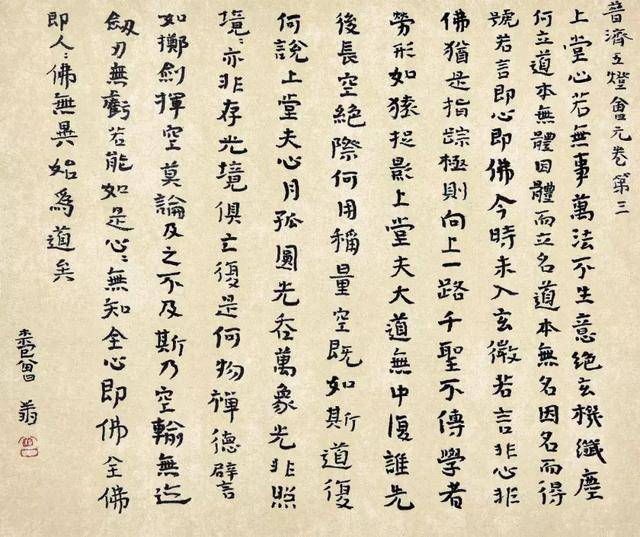 普濟五燈會元卷第三
上堂心若無事萬法不生意絕玄機纖塵
何立道本無體因體而立名道本無名因名而得
號若言即心即佛今時未入玄微若言非心非
佛猶是指蹤極則向上一路千聖不傳學者
勞形如猿捉影上堂夫大道無中復誰先
後長空絕際何用稱量空既如斯道復
何說上堂夫心月孤圓光吞萬象光非照
境〻亦非存光境俱亡復是何物禪德譬言
如擲劍揮空莫論及之不及斯乃空輪無迹
劔刃無虧若能如是心〻無知全心即佛全佛
即人〻佛無異始為道矣
翁